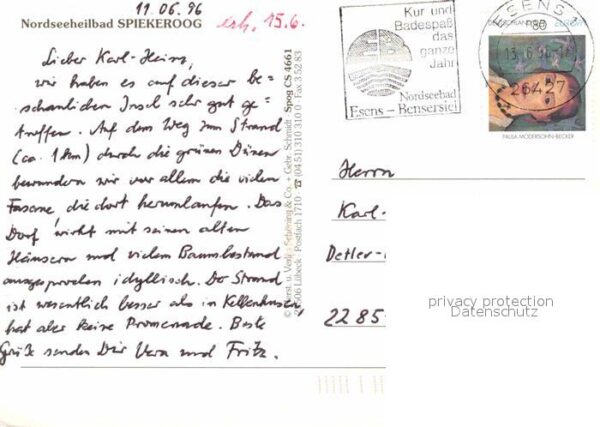 11.06.96
Nordseeheilbad SPIEKEROOG
erh. 15.6.
Lieber Karl-Heinz,
wir haben es auf dieser be-
schaulichen Insel sehr gut ge-
troffen. Auf dem Weg zum Strand
(ca. 1 km) durch die grünen Dünen
bewundern wir vor allem die vielen
Fasane, die dort herumlaufen. Das
Dorf wirkt mit seinen alten
Häusern und vielem Baumbestand
ausgesprochen idyllisch. Der Strand
ist wesentlich besser als in Kellenhusen,
hat aber keine Promenade. Beste
Grüße senden Dir Vera und Fritz.
Schöning & Co. + Gebr. Schmidt · Spog CS 4661
Lübeck · Postfach 1710 · ☎ (04 51) 310 310 0 · Fax 3 52 83
Kur und
Badespaß
das
ganze
Jahr
Nordseebad
Esens – Bensersiel
ESENS
26427
DEUTSCHLAND
80
EUROPA
PAULA MODERSOHN-BECKER
Herrn
Karl-
Detlev-
2285
privacy protection
Datenschutz